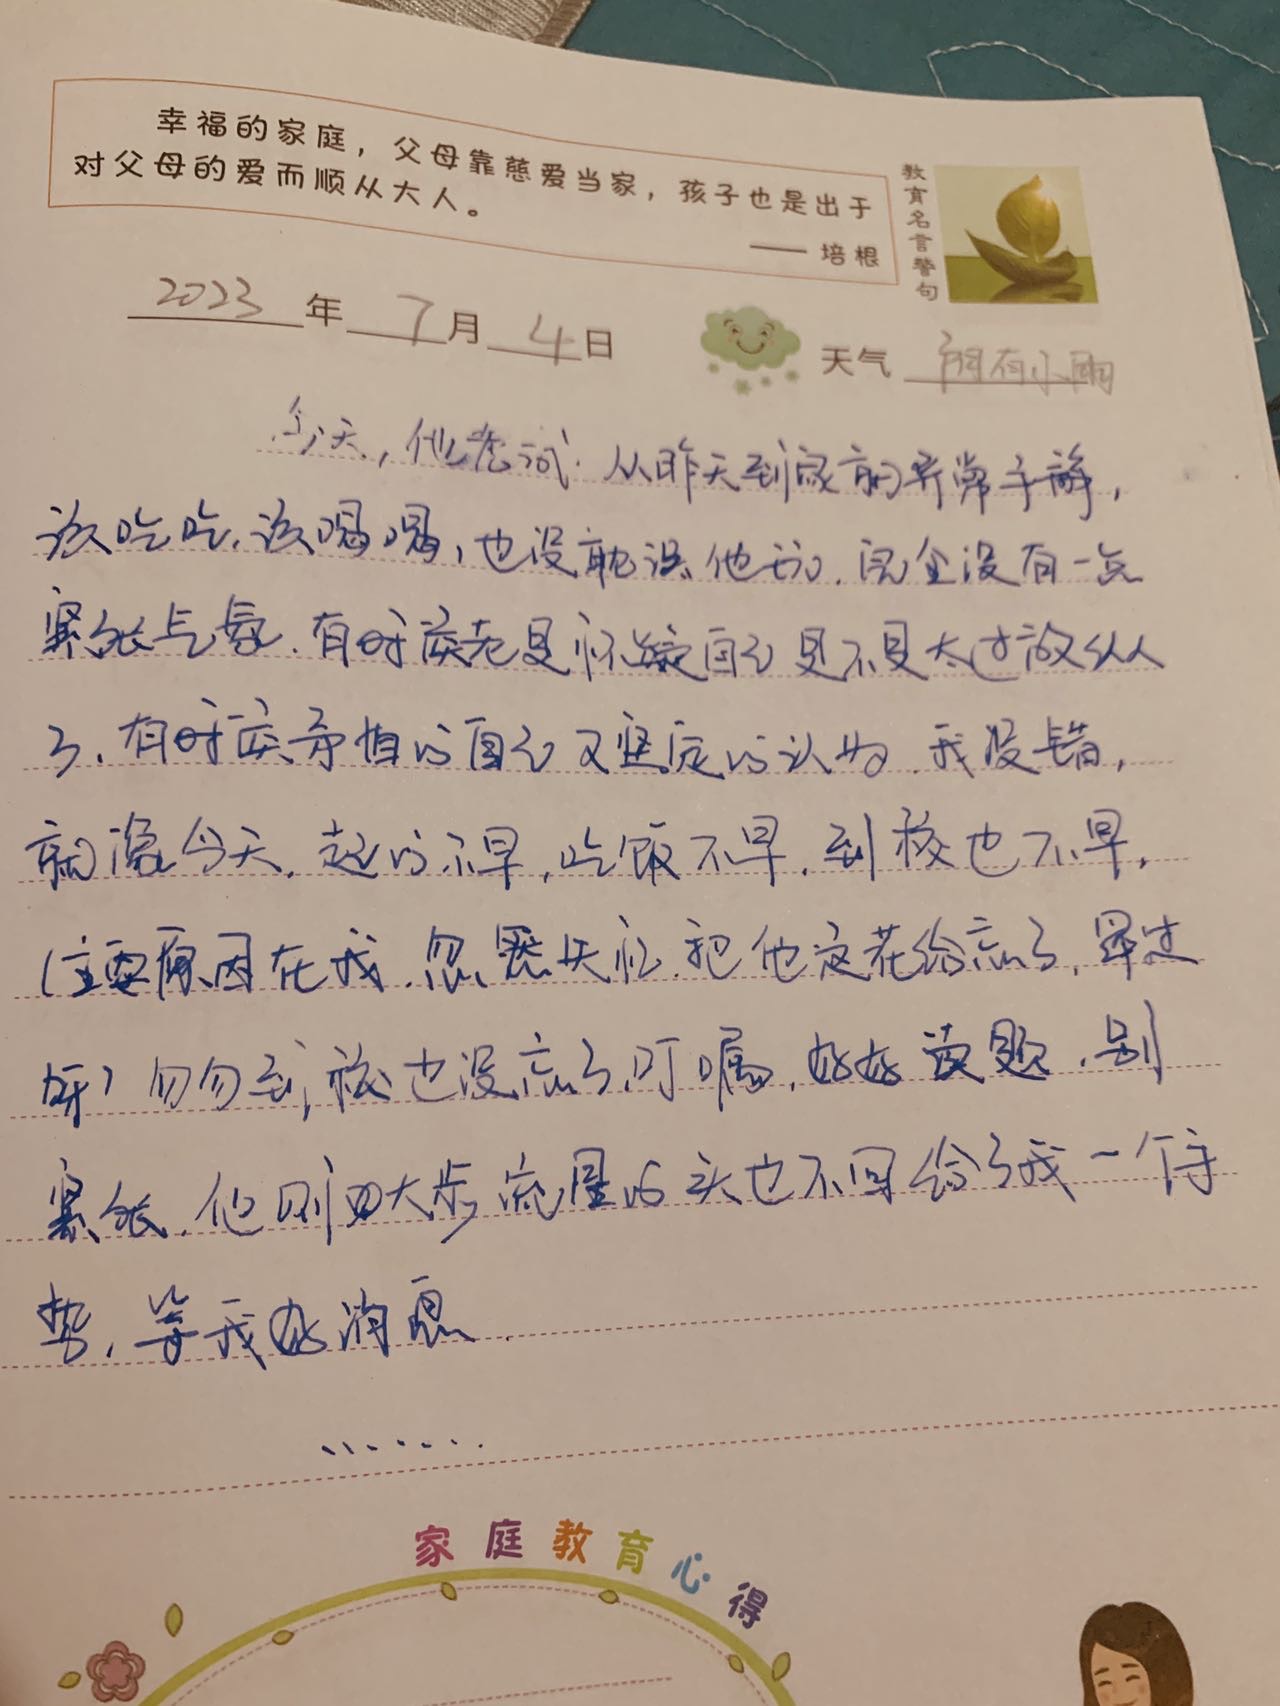 幸福的家庭，父母靠慈爱当家，孩子也是出于
对父母的爱而顺从大人。
—— 培根
教育名言警句
2023年7月4日
天气 阴有小雨
今天，他考试.从昨天到家前异常平静，
该吃吃.该喝喝，也没耽误他玩.完全没有一点
紧张气氛.有时候老是怀疑自己是不是太过放纵
了.有时候矛盾的自己又坚定的认为.我没错，
就像今天.起的不早,吃饭不早.到校也不早.
(主要原因在我.忽然失忆.把他这茬给忘了.罪过
呀)匆匆到校也没忘了叮嘱.好好读题.别
紧张.他则四大步流星的头也不回给了我一个手
势.等我好消息.
.......
家庭教育心得